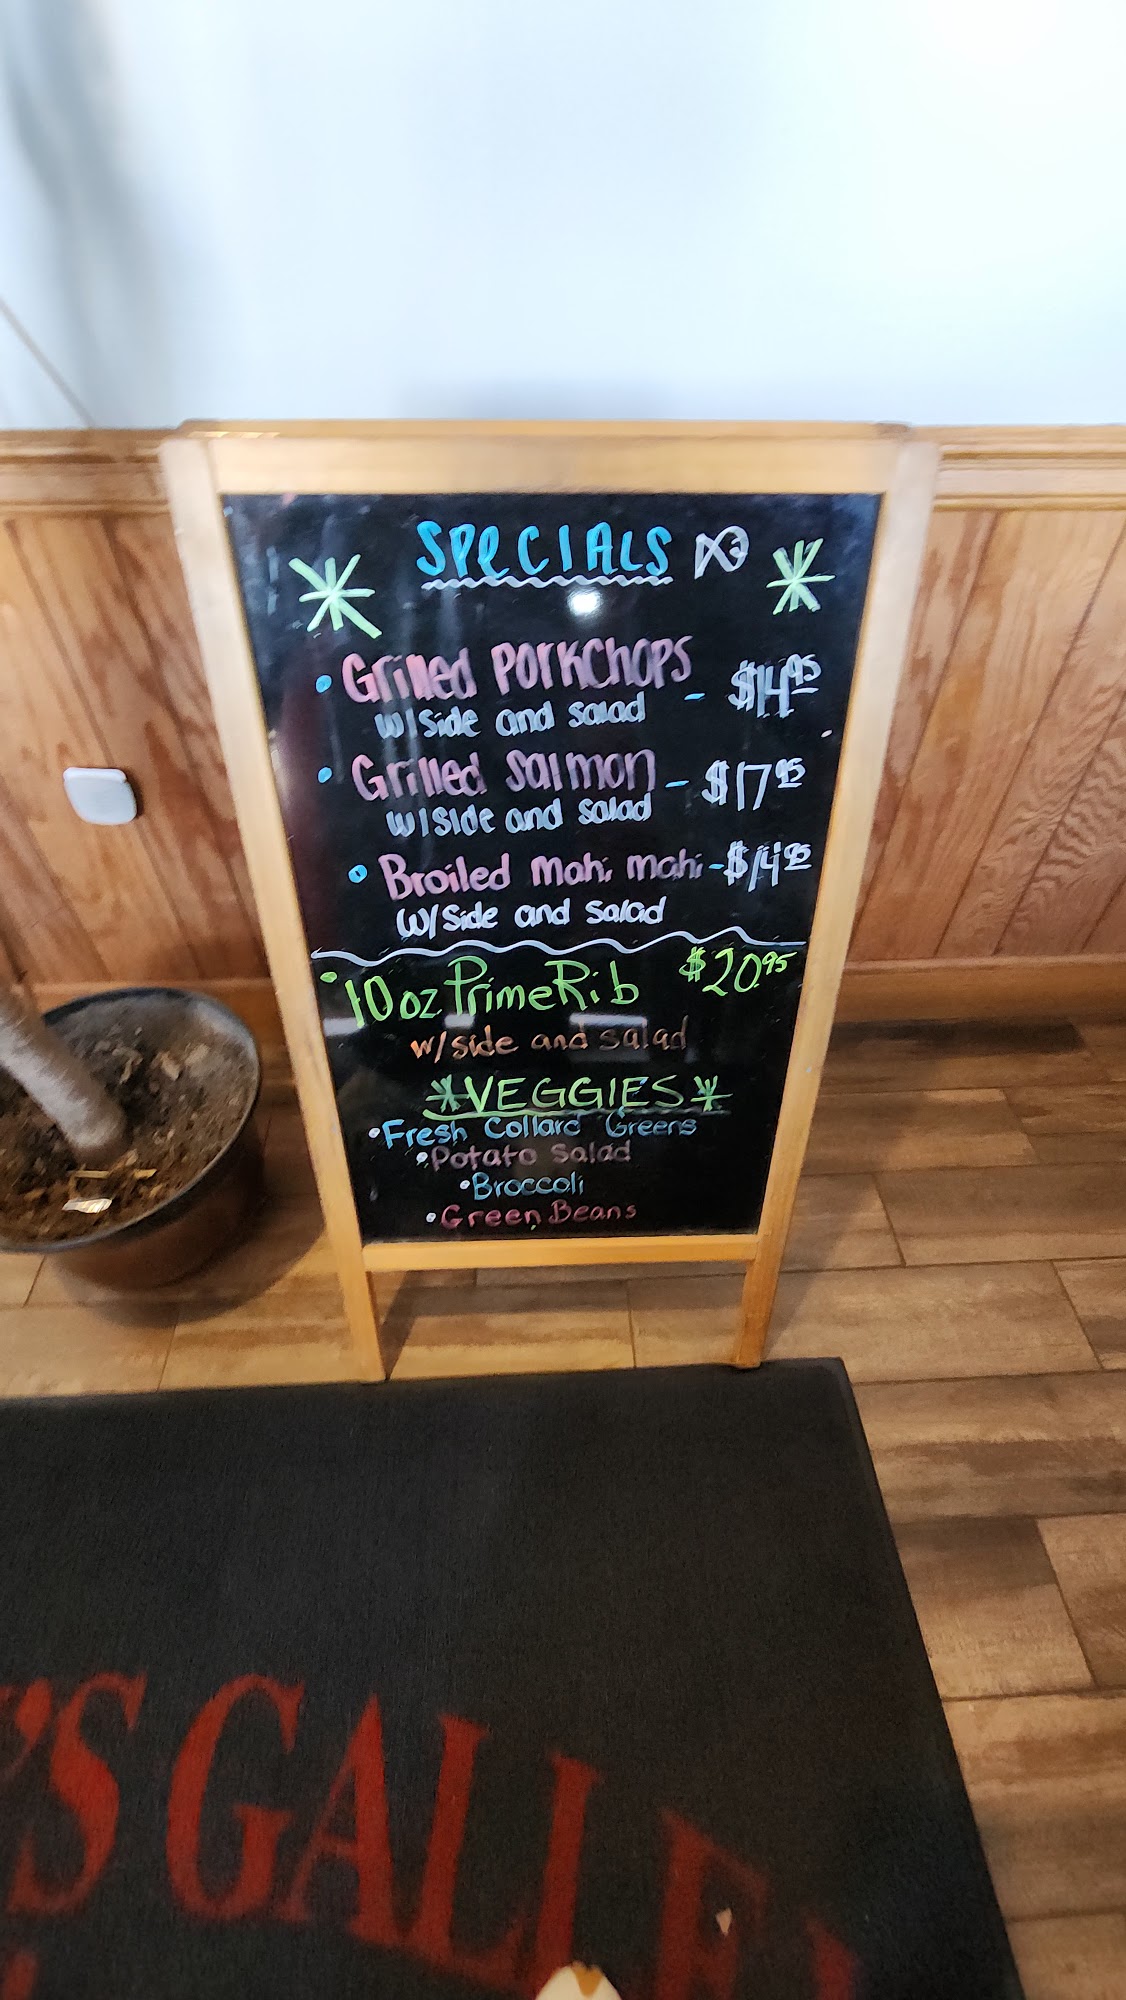 SPECIALS
• Grilled PORKChops - $14.95
w/side and salad
• Grilled Salmon - $17.95
w/side and salad
• Broiled mahi mahi - $14.95
w/side and salad
• 10 oz Prime Rib $20.95
w/side and salad
*VEGGIES*
• Fresh Collard Greens
• Potato Salad
• Broccoli
• Green Beans
'S GALLE